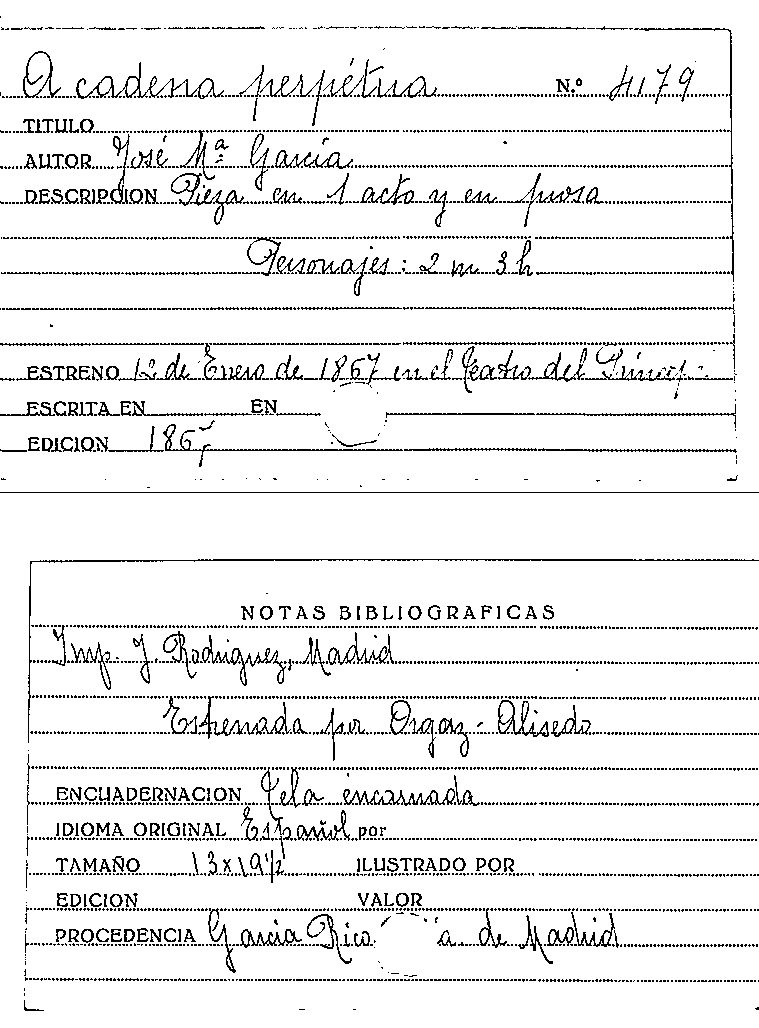 A cadena perpétua N.º 4179
TITULO
AUTOR José Mª García
DESCRIPCION Pieza en 1 acto y en prosa
Personajes: 2 m 3 h
ESTRENO 12 de Enero de 1867 en el Teatro del
ESCRITA EN EN
EDICION 1867
NOTAS BIBLIOGRAFICAS
Imp. J. Rodriguez, Madrid
Estrenada por Orgaz - Alisedo
ENCUADERNACION Tela encarnada
IDIOMA ORIGINAL Español por
TAMAÑO 13 x 19 1/2 ILUSTRADO POR
EDICION VALOR
PROCEDENCIA Garcia Rico a. de Madrid